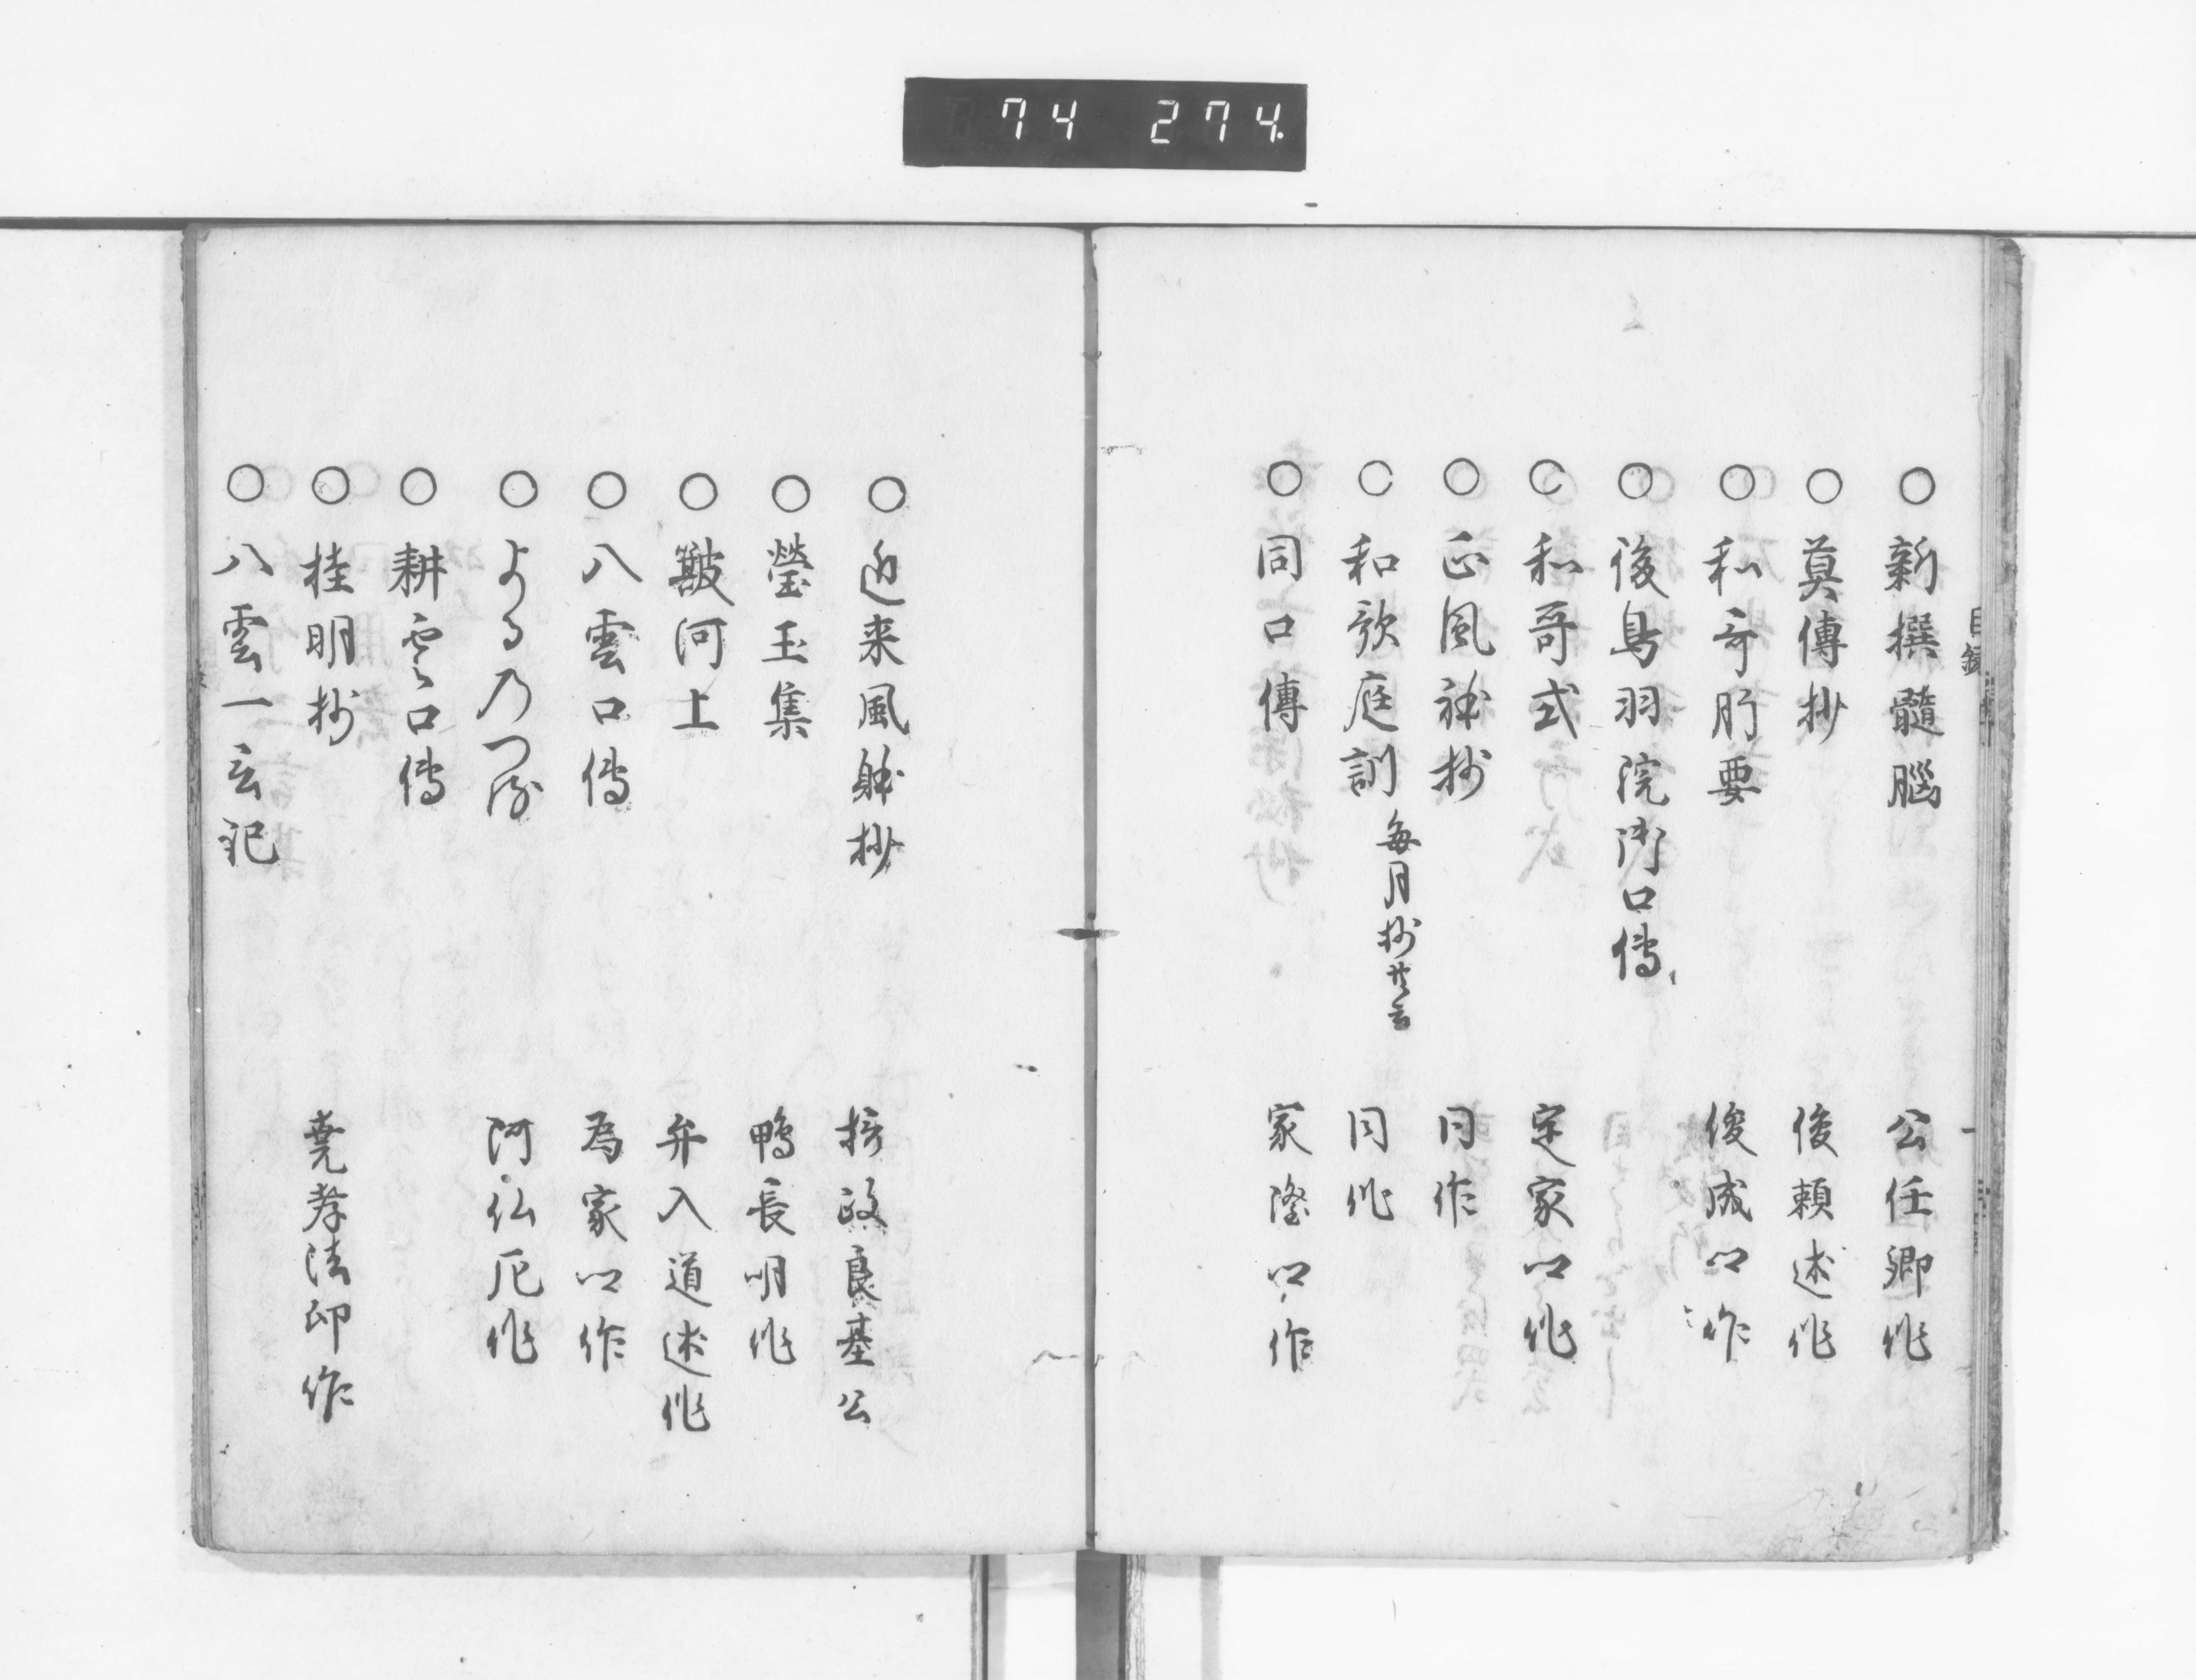 74 274.
目録
○新撰髄腦 公任卿作
○莫傳抄 俊頼述作
○和哥肝要 俊成卿作
○後鳥羽院御口傳
○和哥式 定家卿作
○正風躰抄 同作
○和歌庭訓 毎月抄共云 同作
○同口傳 家隆卿作
○近来風躰抄 摂政良基公
○瑩玉集 鴨長明作
○簸河上 弁入道述作
○八雲口傳 為家卿作
○よるのつる 阿仏尼作
○耕雲口傳
○桂明抄 堯孝法印作
○八雲一言記